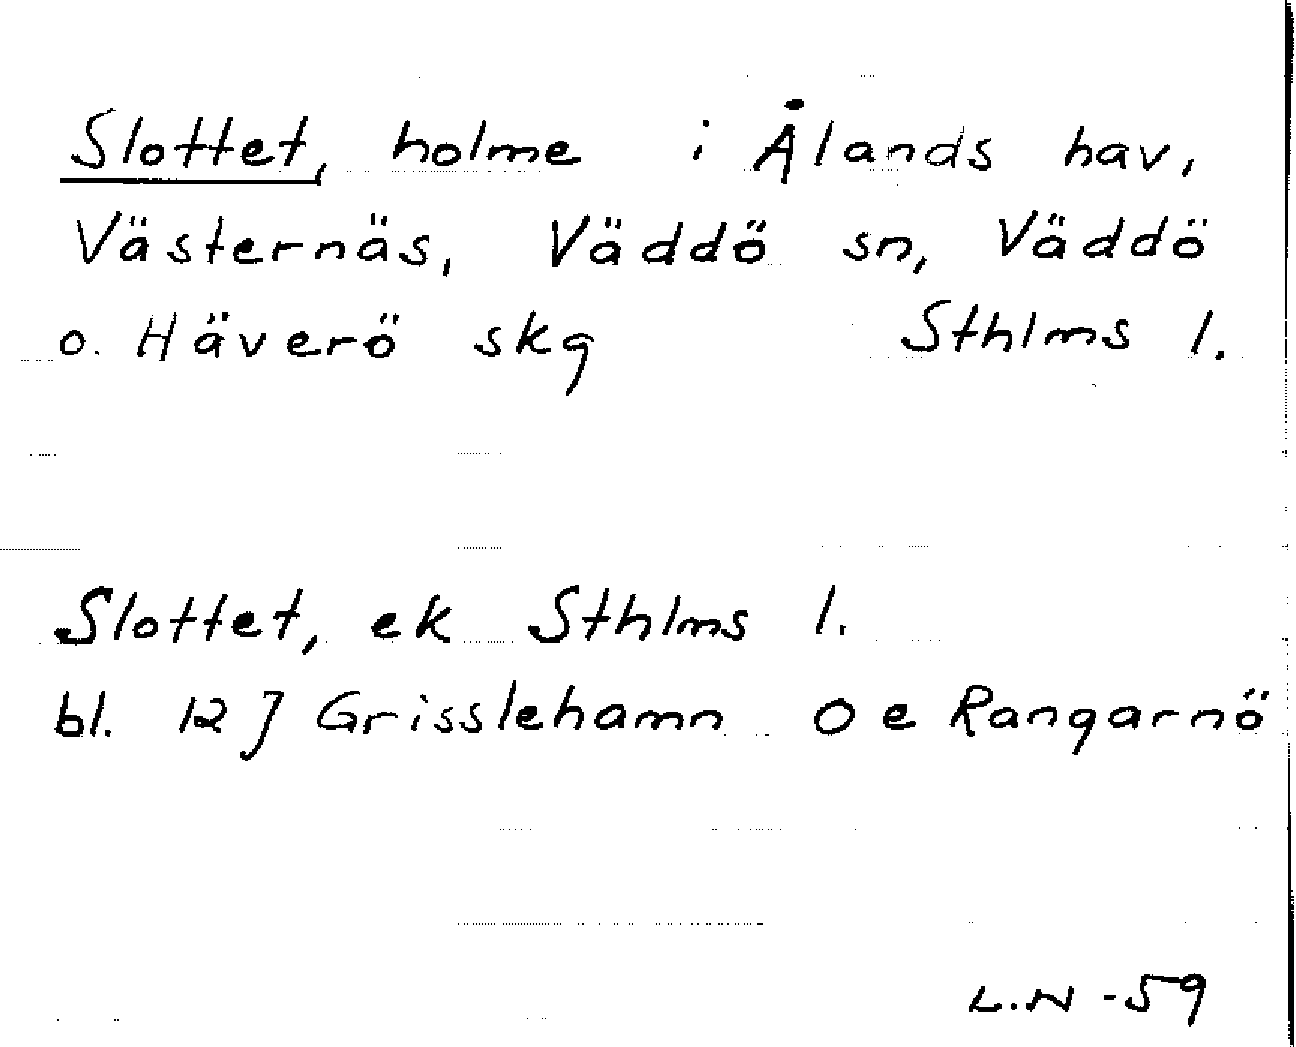 Slottet, holme i Ålands hav,
Västernäs, Väddö sn, Väddö
o. Häverö skg Sthlms l.
Slottet, ek Sthlms l.
bl. 12 J Grisslehamn O e Rangarnö
L.N -59